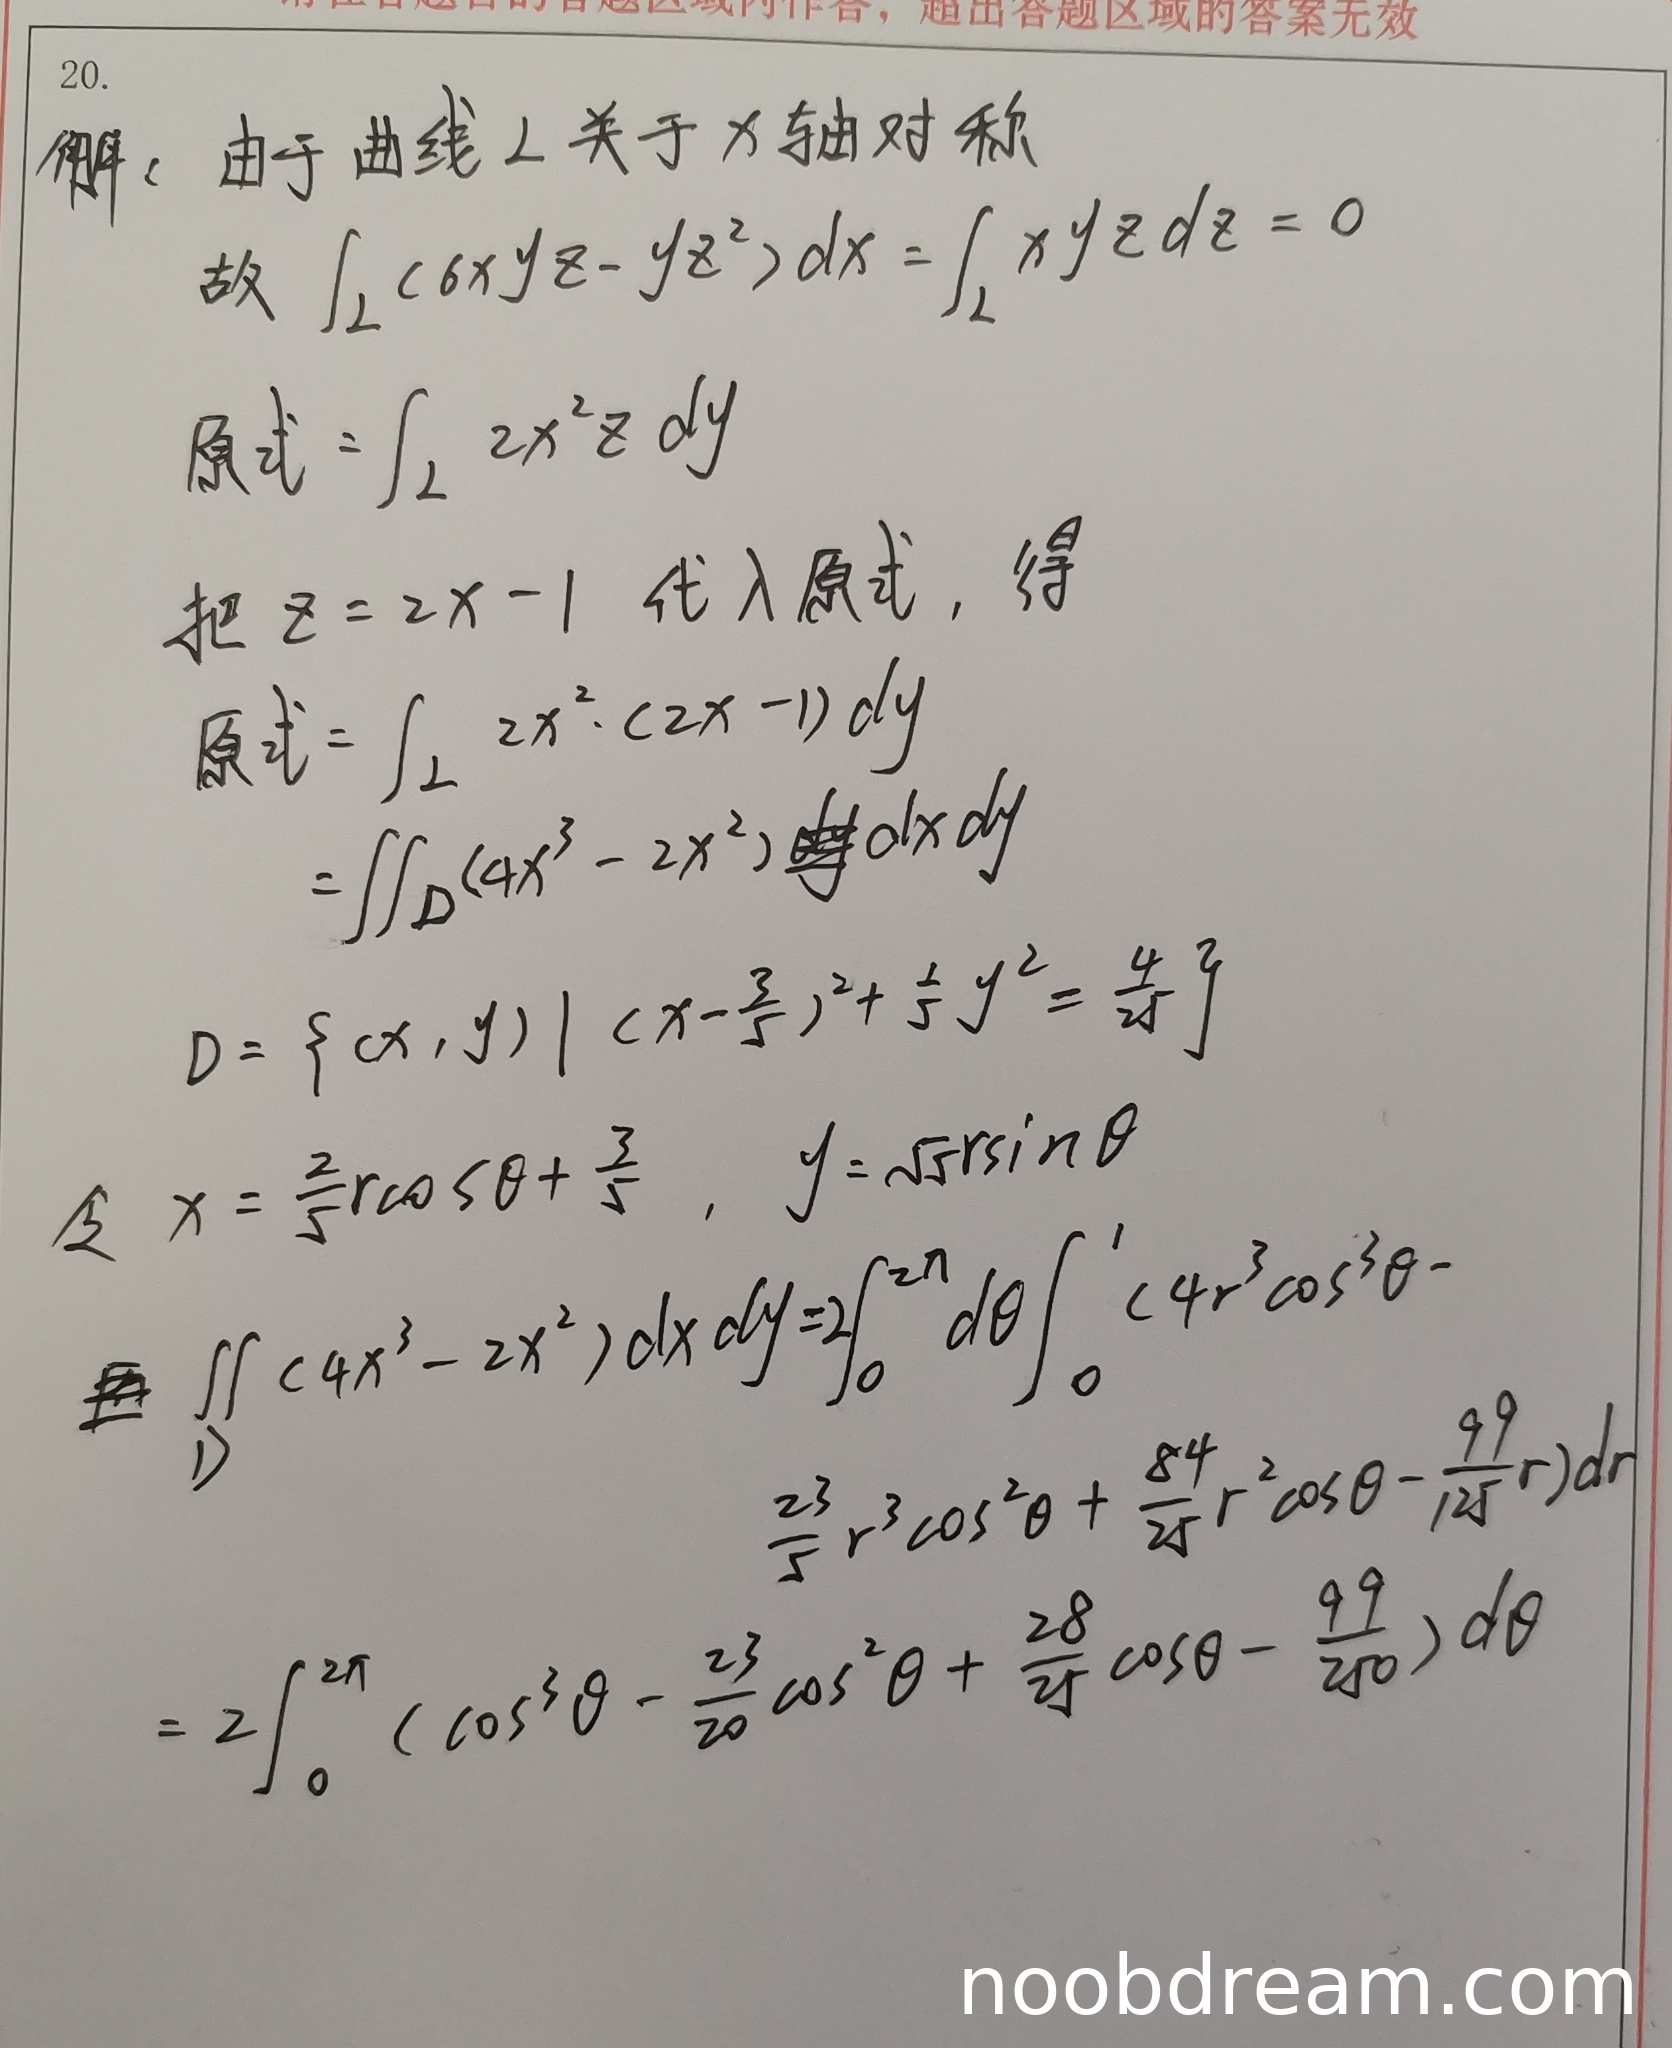 请在各题目的答题区域内作答，超出答题区域的答案无效
20.
解：由于曲线L关于x轴对称
故 ∫_L (6xyz - yz²)dx = ∫_L xyzdz = 0
原式 = ∫_L 2x²z dy
把 z = 2x - 1 代入原式，得
原式 = ∫_L 2x²·(2x - 1)dy
= ∬_D (4x³ - 2x²) dxdy
D = {(x, y) | (x - 3/5)² + 1/5 y² = 4/25}
令 x = 2/5 rcosθ + 3/5 , y = √5 rsinθ
∬_D (4x³ - 2x²)dxdy = 2∫_0^{2π} dθ ∫_0^1 (4r³cos³θ -
23/5 r³cos²θ + 84/25 r²cosθ - 99/125 r)dr
= 2∫_0^{2π} (cos³θ - 23/20 cos²θ + 28/25 cosθ - 99/250)dθ
noobdream.com